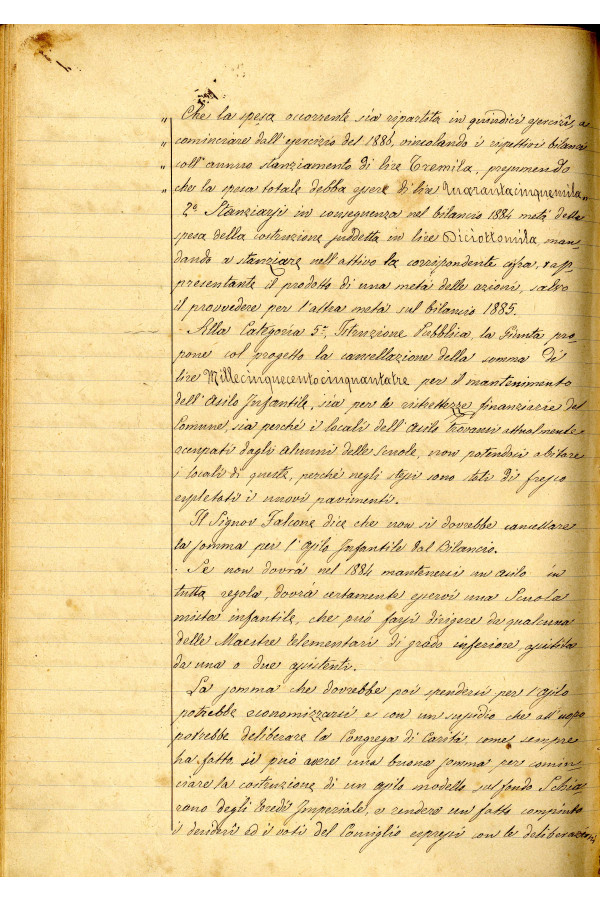 " Che la spesa occorrente sia ripartita in quindici esercizî, a
cominciare dall'esercizio del 1886, vincolando i rispettivi bilanci
" coll'annuo stanziamento di lire Tremila, presumendo
" che la spesa totale debba essere di lire Quarantacinquemila "
2° Stanziarsi in conseguenza nel bilancio 1884 metà della
spesa della costruzione suddetta in lire Diciottomila, man=
dando a stanziare nell'attivo la corrispondente cifra, rap=
presentante il prodotto di una metà delle azioni, salvo
il provvedere per l'altra metà sul bilancio 1885.
Alla Categoria 5ª, Istruzione Pubblica, la Giunta pro=
pone col progetto la cancellazione della somma di
lire Millecinquecentocinquantatre per il mantenimento
dell'Asilo Infantile, sia per le ristrettezze finanziarie del
Comune, sia perché i locali dell'Asilo trovansi attualmente
occupati dagli alunni delle Scuole, non potendosi abitare
i locali di queste, perché negli stessi sono stati di fresco
espletati i nuovi pavimenti.
Il Signor Falcone dice che non si dovrebbe cancellare
la somma per l'Asilo Infantile dal Bilancio.
Se non dovrà nel 1884 mantenersi un asilo in
tutta regola, dovrà certamente esservi una Scuola
mista infantile, che può farsi dirigere da qualcuna
delle Maestre elementari di grado inferiore, assistita
da una o due assistenti.
La somma che dovrebbe poi spendersi per l'Asilo
potrebbe economizzarsi, e con un sussidio che all'uopo
potrebbe deliberare la Congrega di Carità, come sempre
ha fatto, si può avere una buona somma per comin=
ciare la costruzione di un asilo modello sul fondo
degli Eredi Imperiale, e rendere un fatto compiuto
i desiderî ed i voti del Consiglio espressi con le deliberazioni